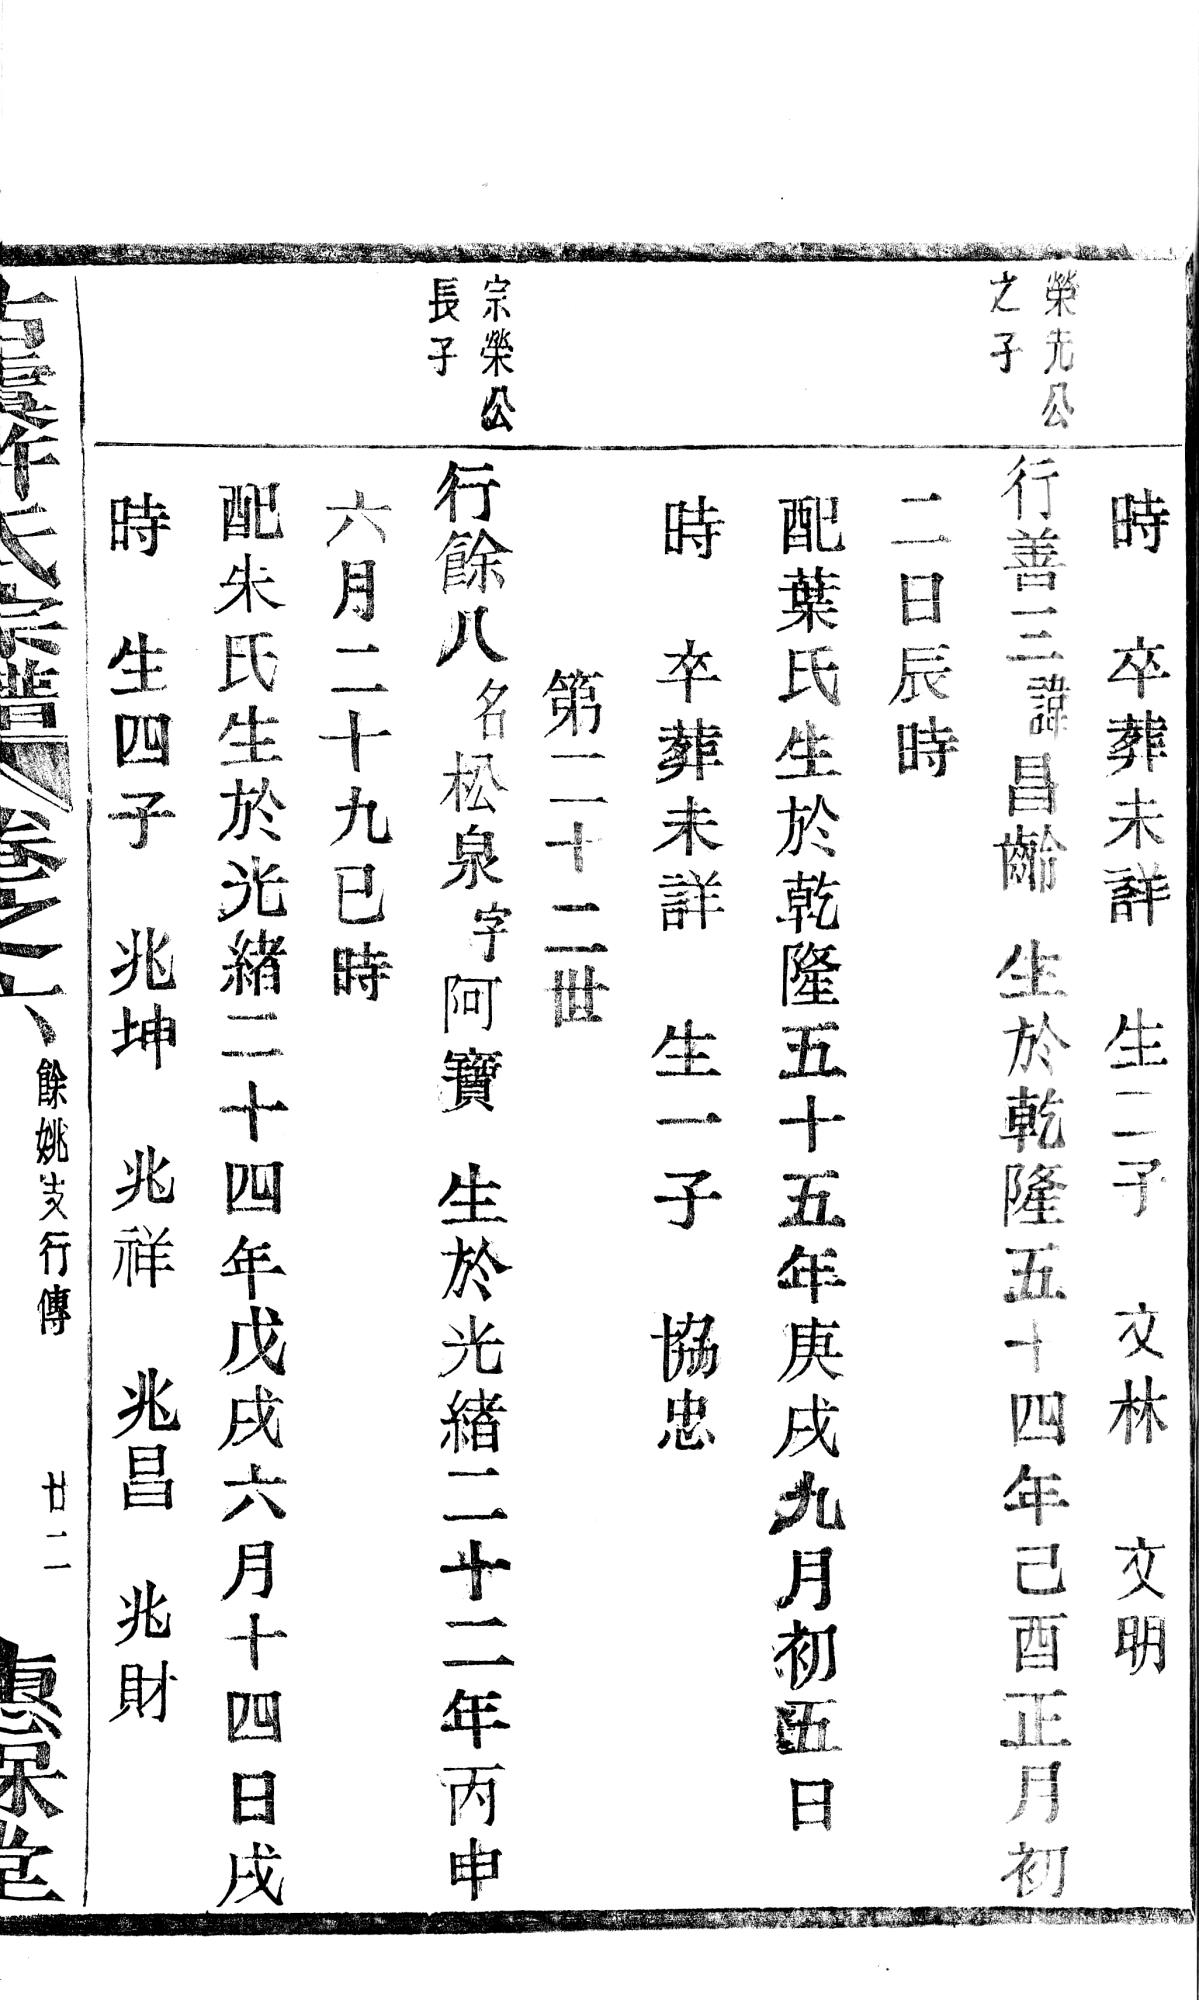 時　卒葬未詳　生二子　文林　文明
榮光公
之子
行善三諱昌齡　生於乾隆五十四年己酉正月初
二日辰時
配葉氏生於乾隆五十五年庚戌九月初五日
時　卒葬未詳　生一子　協忠
第二十二世
宗榮公
長子
行餘八名松泉字阿寶　生於光緒二十二年丙申
六月二十九巳時
配朱氏生於光緒二十四年戊戌六月十四日戌
時　生四子　兆坤　兆祥　兆昌　兆財
古虞許氏宗譜　卷之六　餘姚支行傳　廿二　惠保堂